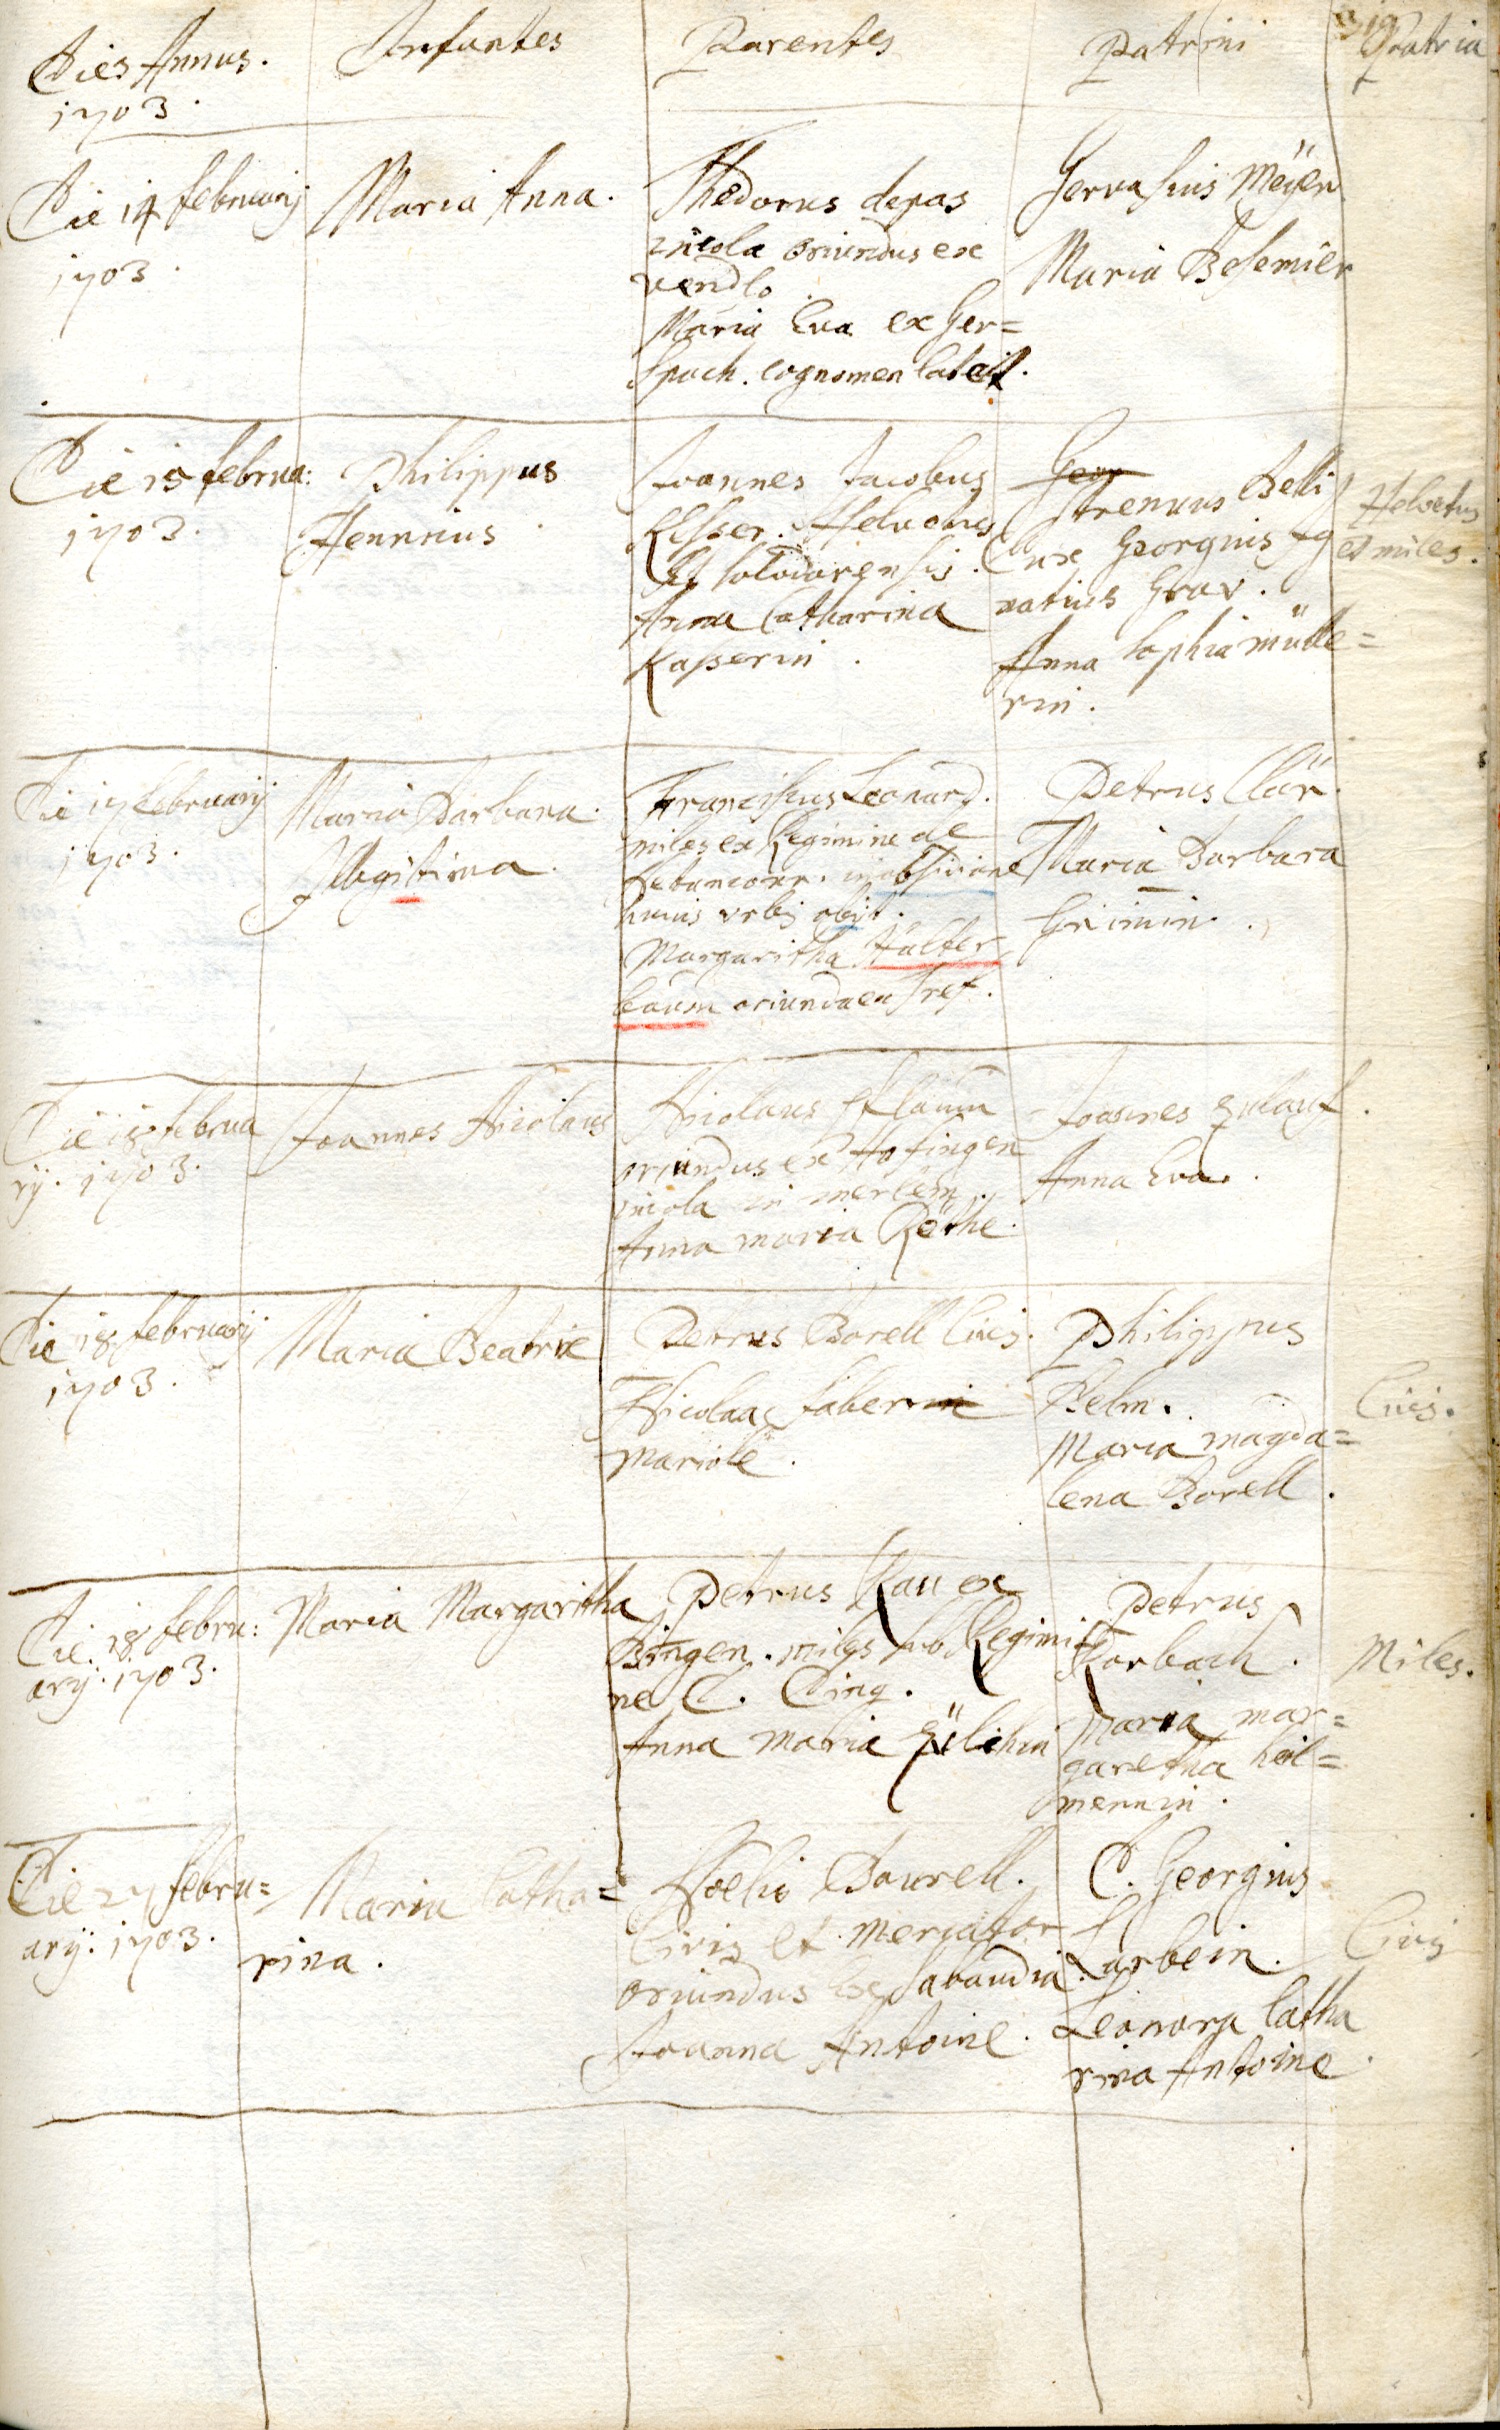 Dies Annus.
1703.
Infantes
Parentes
Patrini
Patria
Die 14 februarij
1703.
Maria Anna.
Thedorus depas
incola oriundus ex
vendlo
Maria Eva ex Ger=
spach. cognomen latet.
Gervasius Meÿer
Maria Besemier
Die 15 februa:
1703.
Philippus
Hennrius
Joannes Jacobus
Helvetus
et solodorensis.
Anna Catharina
Kasserin.
Geor
Strenuus Belli
Dux Georgius Ig
natius Grav.
Anna Sophia mülle=
rin.
Helvetus
et miles.
Die 17 februarij
1703.
Maria Barbara.
Illegitima.
Franciscus Leonard.
miles ex Regimine de
Betancour. in obsidione
huius urbis obijt.
Margaritha Halter
baum oriunda ex Tref.
Petrus Clär.
Maria Barbara
Grimin.
Die 18 februa
rij. 1703.
Joannes Nicolaus
Nicolaus Pflaum
oriundus ex Hofingen
incola in merlem.
Anna maria Röthe.
Joannes Zulauf.
Anna Eva.
Die 18 februarij
1703.
Maria Beatrix
Petrus Borell Civis.
Nicolaa faber
mariole.
Philippus
Helm.
Maria magda=
lena Borell.
Civis.
Die 18 febru:
arij. 1703.
Maria Margaritha
Petrus Rau ex
Bingen. miles sub Regimi
ne D. Cinq.
Anna Maria
Petrus
Korbach.
Maria mar=
garetha heil=
mennin.
Miles.
Die 27 febru=
arij. 1703.
Maria Catha=
rina.
Noelis Bourell.
Civis et Mercator
oriundus ex Sabaudia.
Joanna Antoine.
D. Georgius
Larbein.
Leonora Catha
rina Antoine.
Civis